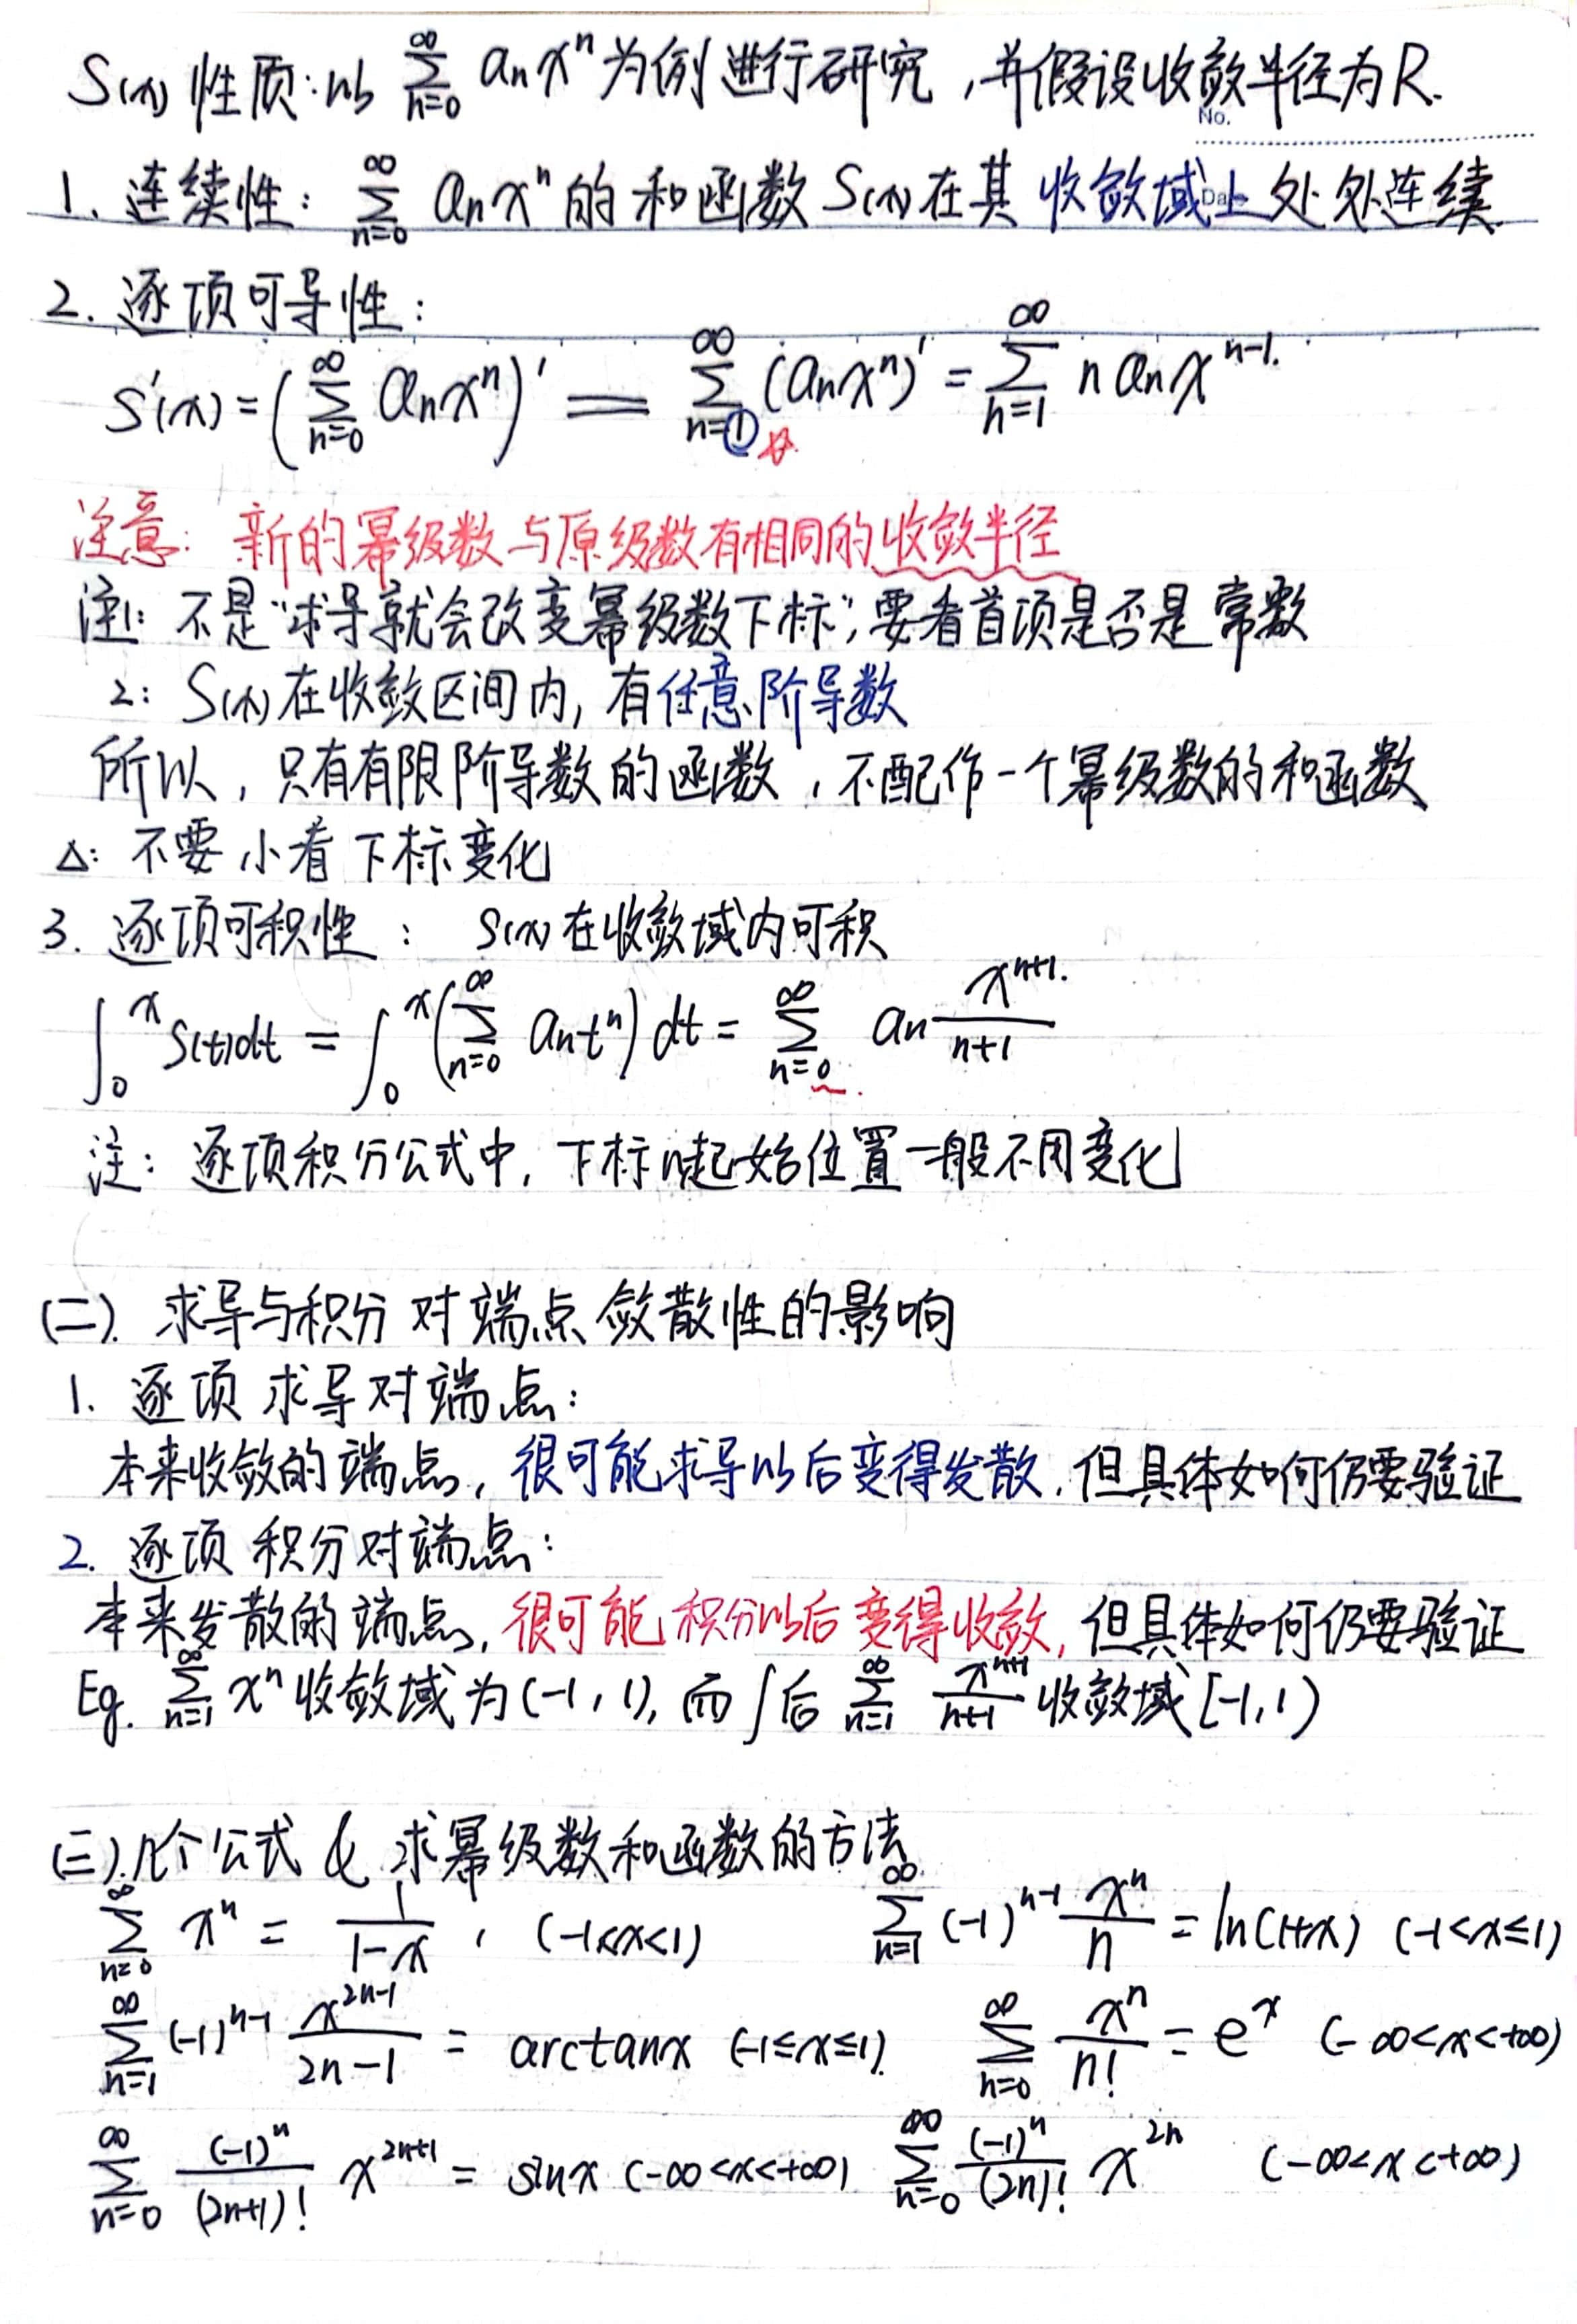 S(x) 性质：以 ∑_{n=0}^{∞} aₙxⁿ 为例进行研究，并假设收敛半径为R.
No.
1. 连续性：∑_{n=0}^{∞} aₙxⁿ 的和函数 S(x) 在其收敛域上处处连续
2. 逐项可导性：
S'(x) = (∑_{n=0}^{∞} aₙxⁿ)' = ∑_{n=①}^{∞} (aₙxⁿ)' = ∑_{n=1}^{∞} n aₙx^{n-1}.
注意：新的幂级数与原级数有相同的收敛半径
注1：不是“求导就会改变幂级数下标”，要看首项是否是常数
2：S(x) 在收敛区间内，有任意阶导数
所以，只有有限阶导数的函数，不配作一个幂级数的和函数
△：不要小看下标变化
3. 逐项可积性：S(x) 在收敛域内可积
∫₀ˣ S(t)dt = ∫₀ˣ (∑_{n=0}^{∞} aₙtⁿ) dt = ∑_{n=0}^{∞} aₙ x^{n+1}/(n+1)
注：逐项积分公式中，下标n起始位置一般不用变化
(二). 求导与积分对端点敛散性的影响
1. 逐项求导对端点：
本来收敛的端点，很可能求导以后变得发散，但具体如何仍要验证
2. 逐项积分对端点：
本来发散的端点，很可能积分以后变得收敛，但具体如何仍要验证
Eg. ∑_{n=1}^{∞} xⁿ 收敛域为(-1,1)，而∫后 ∑_{n=1}^{∞} x^{n+1}/(n+1) 收敛域[-1,1)
(三). 几个公式 & 求幂级数和函数的方法
∑_{n=0}^{∞} xⁿ = 1/(1-x)，(-1<x<1) ∑_{n=1}^{∞} (-1)^{n-1} xⁿ/n = ln(1+x) (-1<x≤1)
∑_{n=1}^{∞} (-1)^{n-1} x^{2n-1}/(2n-1) = arctanx (-1≤x≤1). ∑_{n=0}^{∞} xⁿ/n! = eˣ (-∞<x<+∞)
∑_{n=0}^{∞} (-1)ⁿ/(2n+1)! x^{2n+1} = sinx (-∞<x<+∞) ∑_{n=0}^{∞} (-1)ⁿ/(2n)! x^{2n} (-∞<x<+∞)